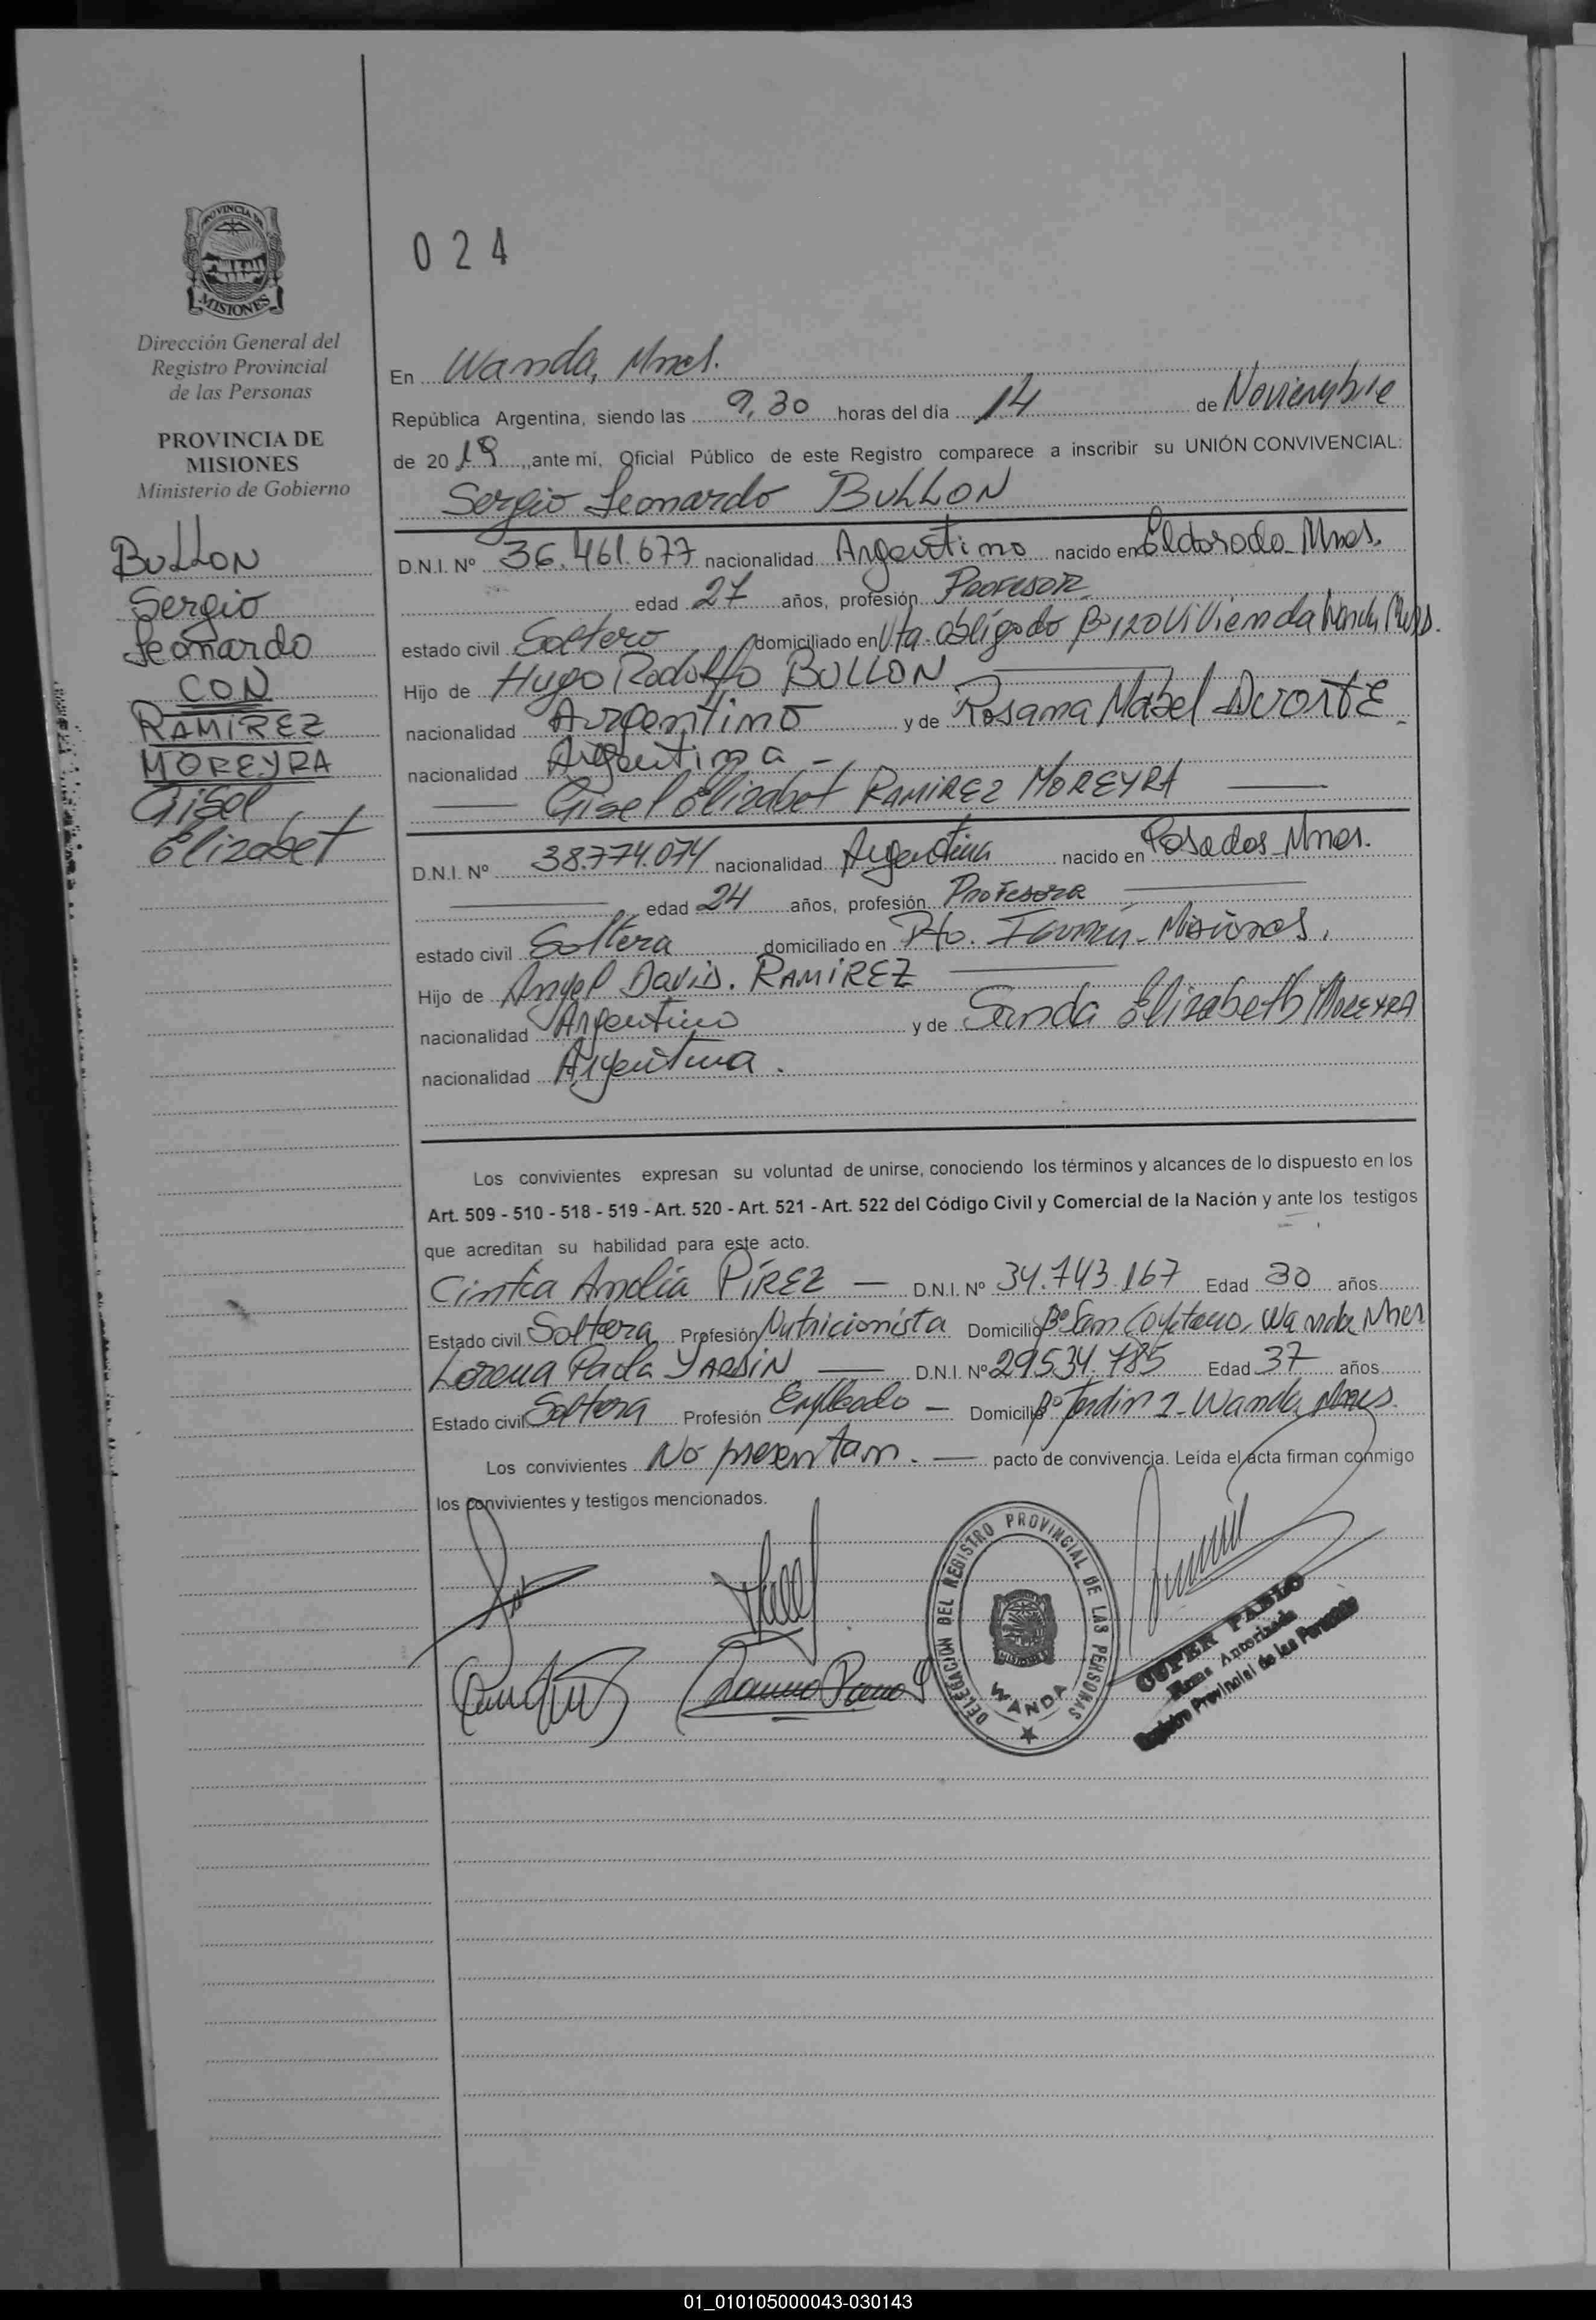 PROVINCIA DE
MISIONES
Dirección General del
Registro Provincial
de las Personas
PROVINCIA DE
MISIONES
Ministerio de Gobierno
BULLON
Sergio
Leonardo
CON
RAMIREZ
MOREYRA
Gisel
Elizabet
024
En Wanda, Mnes.
República Argentina, siendo las 9,30 horas del día 14 de Noviembre
de 2019, ante mi, Oficial Público de este Registro comparece a inscribir su UNIÓN CONVIVENCIAL:
Sergio Leonardo BULLON
D.N.I. Nº 36.461.677 nacionalidad Argentino nacido en Eldorado Mnes.
edad 27 años, profesión PROFESOR
estado civil Soltero domiciliado en Vta. obligado Bº 120 Vivienda Wanda Mnes.
Hijo de Hugo Rodolfo BULLON
nacionalidad Argentino y de Rosana Mabel DUARTE
nacionalidad Argentina -
Gisel Elizabet RAMIREZ MOREYRA
D.N.I. Nº 38.774.074 nacionalidad Argentina nacido en Posadas Mnes.
edad 24 años, profesión Profesora
estado civil Soltera domiciliado en Pto. Iguazú - Misiones.
Hijo de Angel David. RAMIREZ
nacionalidad Argentino y de Sanda Elizabeth MOREYRA
nacionalidad Argentina.
Los convivientes expresan su voluntad de unirse, conociendo los términos y alcances de lo dispuesto en los
Art. 509 - 510 - 518 - 519 - Art. 520 - Art. 521 - Art. 522 del Código Civil y Comercial de la Nación y ante los testigos
que acreditan su habilidad para este acto.
Cintia Analia PÍREZ — D.N.I. Nº 34.743.167 Edad 30 años
Estado civil Soltera Profesión Nutricionista Domicilio Bº San Cayetano, Wanda Mnes
Lorena Paola — D.N.I. Nº 29534.785 Edad 37 años
Estado civil Soltera Profesión Empleado - Domicilio Bº Jardin 2 - Wanda, Mnes.
Los convivientes No presentan. — pacto de convivencia. Leída el acta firman conmigo
los convivientes y testigos mencionados.
DELEGACION DEL REGISTRO PROVINCIAL DE LAS PERSONAS
WANDA
PABLO
Autorizada
Registro Provincial de las Personas
01_010105000043-030143